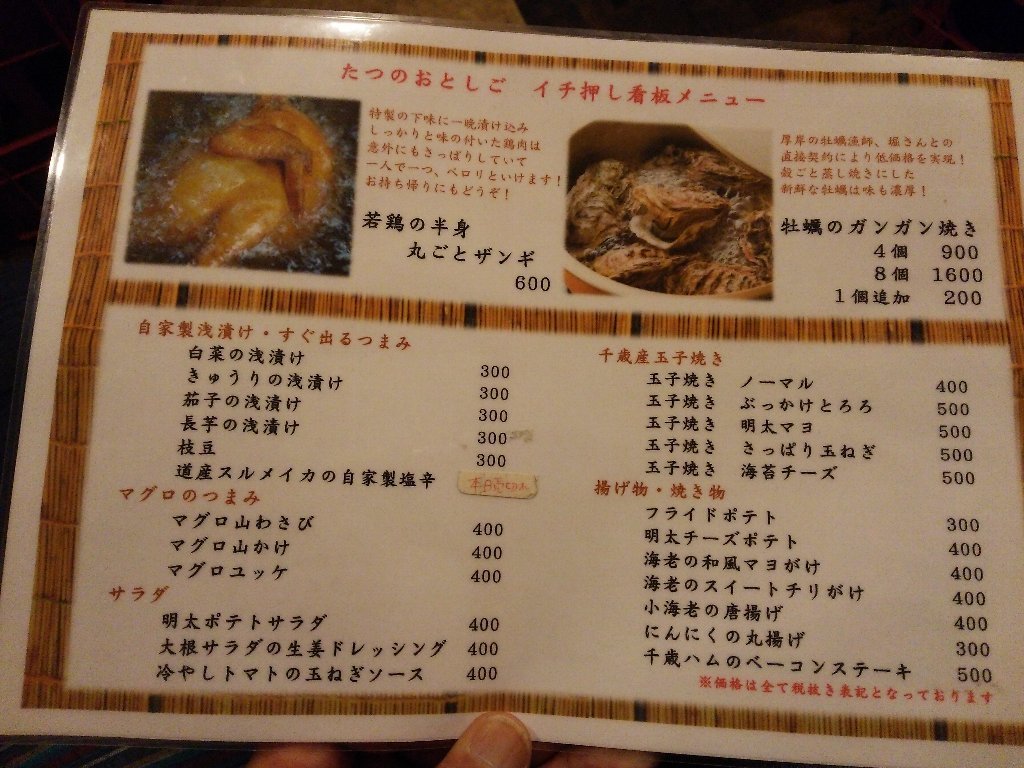 たつのおとしご イチ押し看板メニュー
特製の下味に一晩漬け込み
しっかりと味の付いた鶏肉は
意外にもさっぱりしていて
一人で一つ、ペロリといけます!
お持ち帰りにもどうぞ!
若鶏の半身
丸ごとザンギ
600
厚岸の牡蠣漁師、堀さんとの
直接契約により低価格を実現!
殻ごと蒸し焼きにした
新鮮な牡蠣は味も濃厚!
牡蠣のガンガン焼き
4個 900
8個 1600
1個追加 200
自家製浅漬け・すぐ出るつまみ
白菜の浅漬け 300
きゅうりの浅漬け 300
茄子の浅漬け 300
長芋の浅漬け 300
枝豆 300
道産スルメイカの自家製塩辛 本日売切れ
マグロのつまみ
マグロ山わさび 400
マグロ山かけ 400
マグロユッケ 400
サラダ
明太ポテトサラダ 400
大根サラダの生姜ドレッシング 400
冷やしトマトの玉ねぎソース 400
千歳産玉子焼き
玉子焼き ノーマル 400
玉子焼き ぶっかけとろろ 500
玉子焼き 明太マヨ 500
玉子焼き さっぱり玉ねぎ 500
玉子焼き 海苔チーズ 500
揚げ物・焼き物
フライドポテト 300
明太チーズポテト 400
海老の和風マヨがけ 400
海老のスイートチリがけ 400
小海老の唐揚げ 400
にんにくの丸揚げ 300
千歳ハムのベーコンステーキ 500
※価格は全て税抜き表記となっております